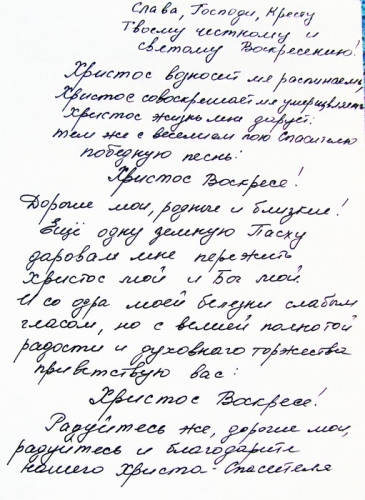 Слава, Господи, Кресту
Твоему честному и
святому Воскресению!
Христос вдносит мя распинаем,
Христос совоскрешает мя умерщвляет
Христос жизнь мне дарует:
тем же с веселием пою Спасителю
победную песнь:
Христос Воскресе!
Дорогие мои, родные и близкие!
Ещё одну земную Пасху
даровал мне пережить
Христос мой и Бог мой.
И со одра моей болезни слабым
гласом, но с велией полнотой
радости и духовного торжества
приветствую вас:
Христос Воскресе!
Радуйтесь же, дорогие мои,
радуйтесь и благодарите
нашего Христа-Спасителя